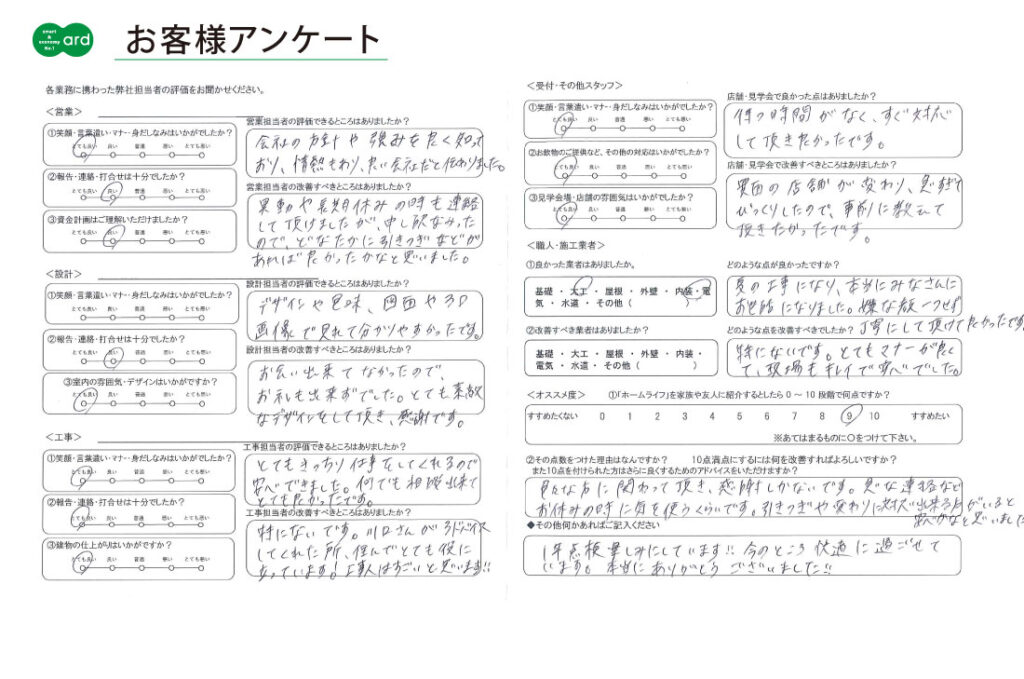 smart & economy No.1 ard
お客様アンケート
各業務に携わった弊社担当者の評価をお聞かせください。
<営業>
①笑顔・言葉遣い・マナー・身だしなみはいかがでしたか?
とても良い 良い 普通 悪い とても悪い
②報告・連絡・打合せは十分でしたか?
とても良い 良い 普通 悪い とても悪い
③資金計画はご理解いただけましたか?
とても良い 良い 普通 悪い とても悪い
営業担当者の評価できるところはありましたか?
会社の方針や強みを良く知って
おり、情熱もあり、良い会社だと伝わりました。
営業担当者の改善すべきところはありましたか?
異動や長期休みの時も連絡
して頂けましたが、申し訳なかった
ので、どなたかに引きつぎなどが
あれば良かったかなと思いました。
<設計>
①笑顔・言葉遣い・マナー・身だしなみはいかがでしたか?
とても良い 良い 普通 悪い とても悪い
②報告・連絡・打合せは十分でしたか?
とても良い 良い 普通 悪い とても悪い
③室内の雰囲気・デザインはいかがですか?
とても良い 良い 普通 悪い とても悪い
設計担当者の評価できるところはありましたか?
デザインや色味、図面や3D
画像で見れて分かりやすかったです。
設計担当者の改善すべきところはありましたか?
お会い出来てなかったので、
お礼も出来ずでした。とても素敵
なデザインをして頂き、感謝です。
<工事>
①笑顔・言葉遣い・マナー・身だしなみはいかがでしたか?
とても良い 良い 普通 悪い とても悪い
②報告・連絡・打合せは十分でしたか?
とても良い 良い 普通 悪い とても悪い
③建物の仕上がりはいかがですか?
とても良い 良い 普通 悪い とても悪い
工事担当者の評価できるところはありましたか?
とてもきっちり仕事をしてくれるので
安心できました。何でも相談出来て
とても良かったです。
工事担当者の改善すべきところはありましたか?
特にないです。川口さんが
してくれた所、住んでとても役に
立っています!工事人はすごいと思います!!
<受付・その他スタッフ>
①笑顔・言葉遣い・マナー・身だしなみはいかがでしたか?
とても良い 良い 普通 悪い とても悪い
②お飲物のご提供など、その他の対応はいかがでしたか?
とても良い 良い 普通 悪い とても悪い
③見学会場・店舗の雰囲気はいかがでしたか?
とても良い 良い 普通 悪い とても悪い
店舗・見学会で良かった点はありましたか?
待つ時間がなく、すぐ対応
して頂き良かったです。
店舗・見学会で改善すべきところはありましたか?
の店舗が変わり、
びっくりしたので、事前に教えて
頂きたかったです。
<職人・施工業者>
①良かった業者はありましたか。
基礎 ・ 大工 ・ 屋根 ・ 外壁 ・ 内装・電
気 ・ 水道 ・ その他 ( )
どのような点が良かったですか?
夏の工事になり、本当にみなさんに
お世話になりました。嫌な顔一つせず
丁寧にして頂けて良かったです。
②改善すべき業者はありましたか?
基礎 ・ 大工 ・ 屋根 ・ 外壁 ・ 内装 ・
電気 ・ 水道 ・ その他 ( )
どのような点を改善すべきでしたか?
特にないです。とてもマナーが良く
て、現場もキレイで安心でした。
<オススメ度> ①「ホームライフ」を家族や友人に紹介するとしたら 0 ～ 10 段階で何点ですか?
すすめたくない 0 1 2 3 4 5 6 7 8 9 10 すすめたい
※あてはまるものに○をつけて下さい。
②その点数をつけた理由はなんですか? 10点満点にするには何を改善すればよろしいですか?
また10点を付けられた方はさらに良くするためのアドバイスをいただけますか?
色々な方に関わって頂き、感謝しかないです。急な連絡など
お休みの時に気を使うくらいです。引きつぎや変わりに対応出来る方がいると
安心かなと思いました
◆その他何かあればご記入ください
1年点検楽しみにしています!! 今のところ快適に過ごせて
います。本当にありがとうございました!!